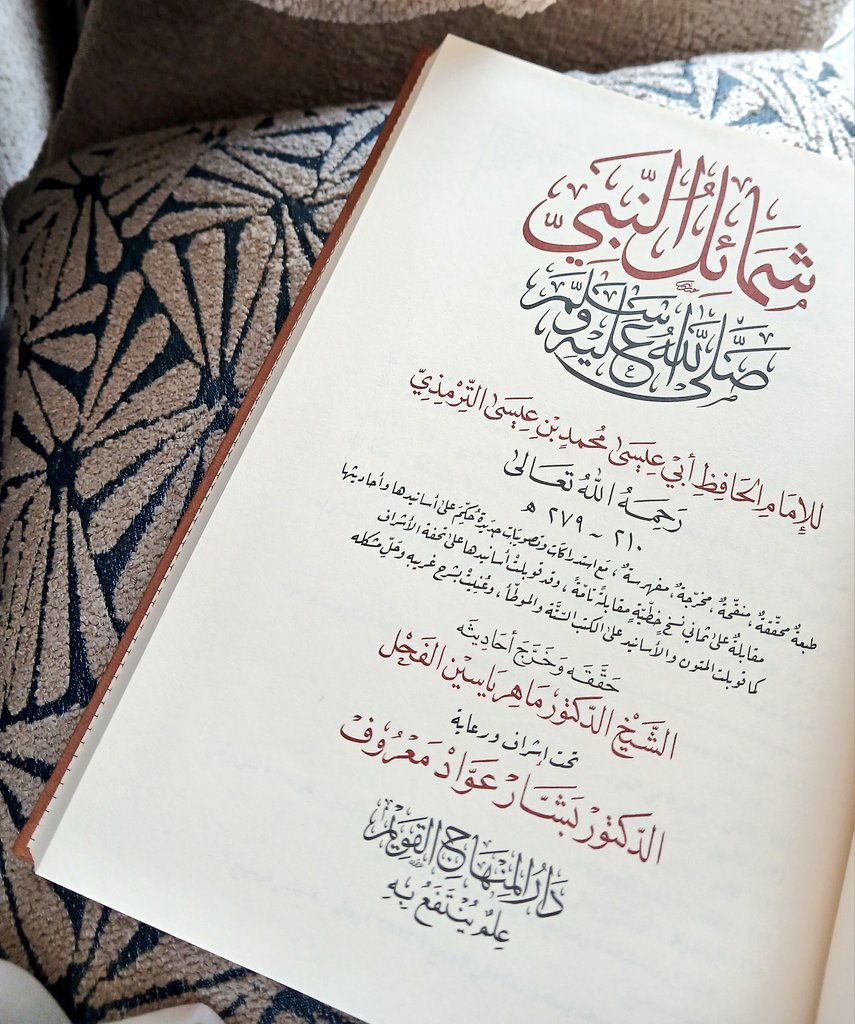 شَمَائِلُ النَّبِيِّ
صَلَّى اللهُ عَلَيْهِ وَسَلَّمَ
للإِمَامِ الحَافِظِ أَبِي عِيسَىٰ مُحَمَّدِ بْنِ عِيسَىٰ التِّرْمِذِيِّ
رَحِمَهُ اللهُ تَعَالَىٰ
٢١٠ ~ ٢٧٩ هـ
طبعةٌ محقَّقةٌ، منقَّحةٌ، مخرَّجةٌ، مفهرسةٌ، مَعَ استدراكات وتصويبات جديدة حُكِمَ على أسانيدها وأحاديثها
مقابلةٌ على ثماني نسخٍ خطيّةٍ مقابلةً تامَّةً، وقد قوبلتْ أسانيدها على تحفة الأشراف
كما قوبلت المتون والأسانيد على الكتب الستَّة والموطَّأ، وعُنِيَتْ بشرح غريبه وحَلِّ مشكله
حَقَّقَه وَخَرَّجَ أحَادِيثَه
الشَّيْخ الدّكتور مَاهِر يَاسِيْن الفَحْل
تحت إشراف ورعاية
الدّكتور بَشَّار عَوَّاد مَعْرُوف
دَارُ المِنْهَاجِ القَوِيْم
عِلمٌ يُنْتَفَعُ بِهِ